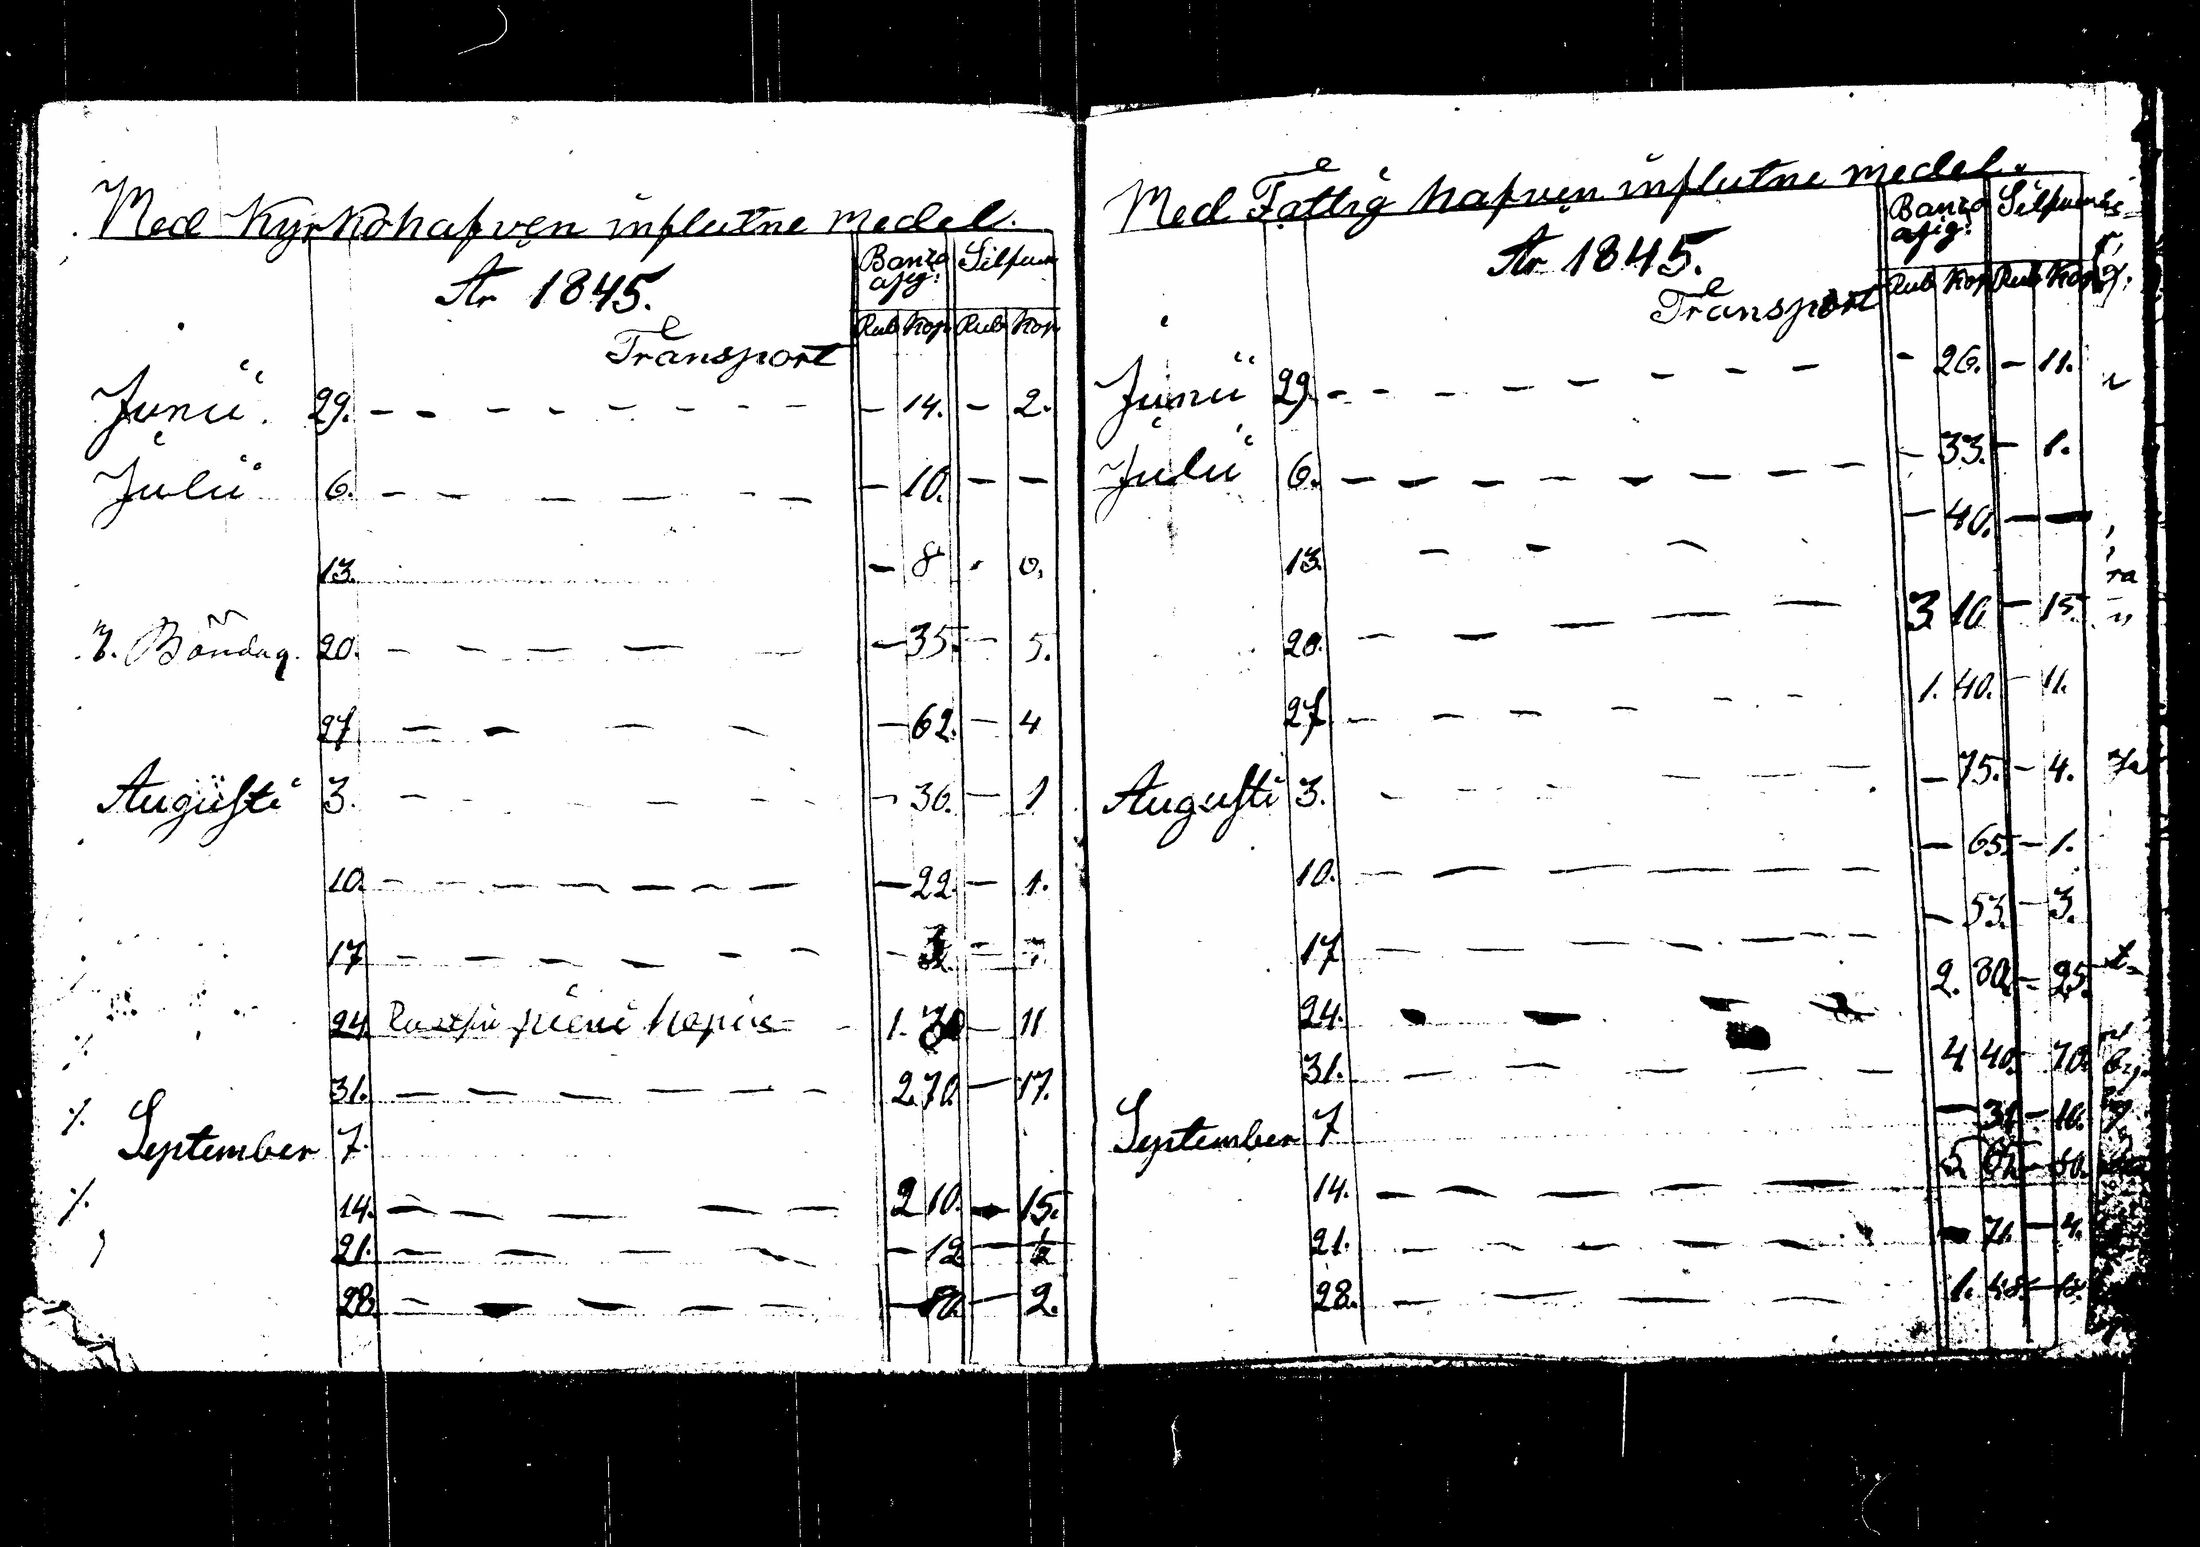 Med Kyrkohafven influtne medel.
År 1845.
Banco Silfver
asig:
Rub Kop Rub Kop
Transport
Junii 29. — 14. — 2.
Julii 6. — 10. — —
13. — 8 0.
3. Böndag. 20. — 35. — 5.
27 — 62. — 4
Augusti 3. — 36. — 1
10. — 22. — 1.
17
24. pieni 1. — 11
31. 2 70. — 17.
September 7.
14. 2 10. — 15.
21. — 12 — ½
28. — — 2.
Med Fattig hafven influtne medel.
År 1845.
Banco Silfver
asig:
Rub Kop Rub Kop
Transport
Junii 29. — 26. — 11.
Julii 6. — 33. — 1.
13. — 40. — —
20. 3 10 — 15.
27 1. 40. — 11.
Augusti 3. — 75. — 4.
10. — 65. — 1.
17 — 53. — 3.
24. 2. 30. — 25.
31. 4 40. — 70.
September 7 — 31 — 10.
14. 5 — 50.
21. — 71. — 4.
28. 1.